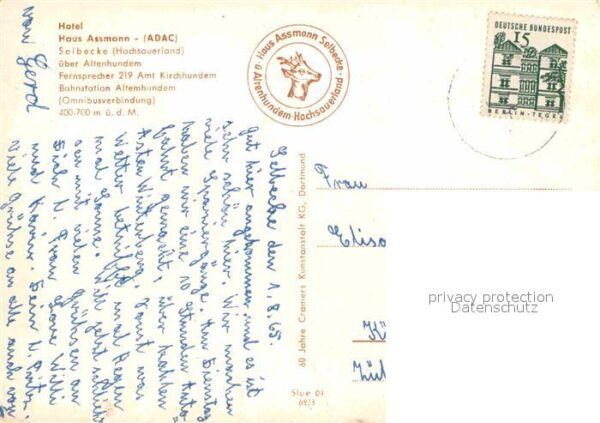 Hotel
Haus Assmann - (ADAC)
Selbecke (Hochsauerland)
über Altenhundem
Fernsprecher 219 Amt Kirchhundem
Bahnstation Altenhundem
(Omnibusverbindung)
400-700 m ü. d. M.
Haus Assmann Selbecke
ü. Altenhundem-Hochsauerland
DEUTSCHE BUNDESPOST
15
BERLIN-TEGEL
Selbecke den 1.8.65
gut hier angekommen und es ist
sehr schön hier. Wir machen
viele Spaziergänge. Am Dienstag
haben wir eine 10 Stunden Auto-
fahrt gemacht, über Kahlen
Asten Winterberg. Sonst war
Wetter betrifft mal Regen
mal Sonne. Will jetzt schließ-
sen mit vielen Grüßen an
Dich u. Frau
und Karin. Dein
Viele Grüße an alle auch von
von Gerd
60 Jahre Cramers Kunstanstalt KG, Dortmund
Slue 04
62/3
Frau
Eliso
privacy protection
Datenschutz